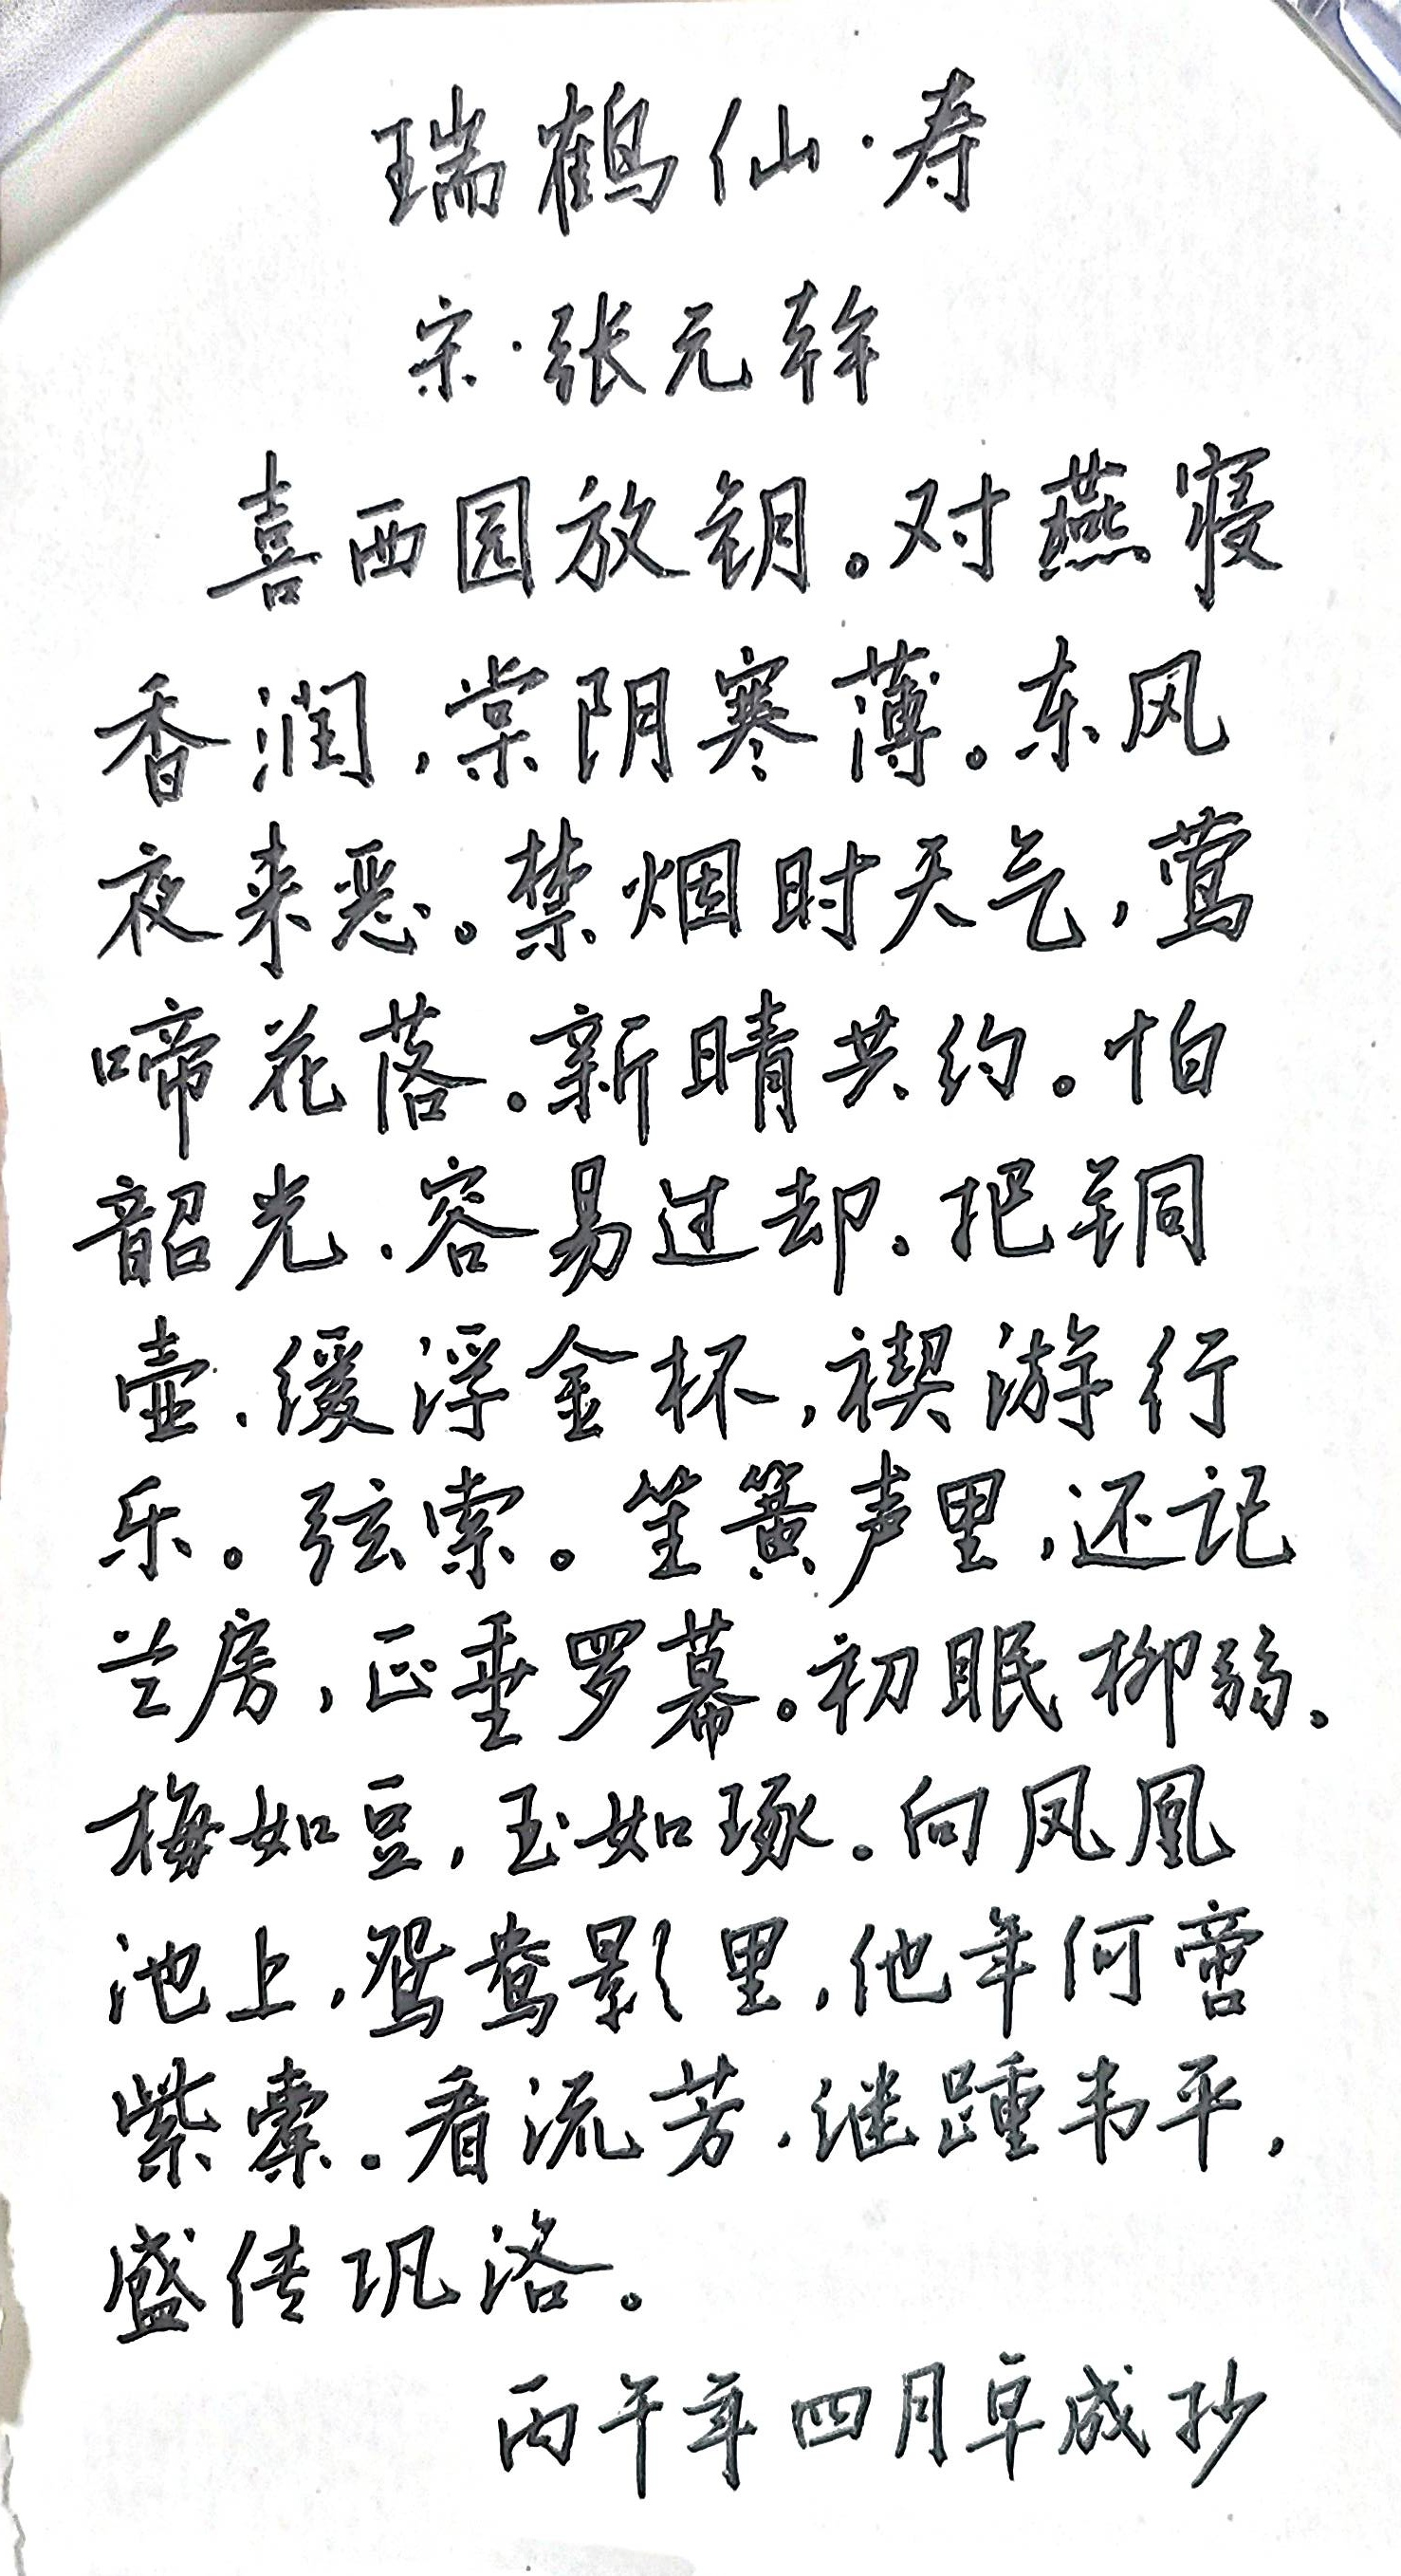 瑞鹤仙·寿
宋·张元幹
喜西园放钥。对燕寝
香润,棠阴寒薄。东风
夜来恶。禁烟时天气,莺
啼花落。新晴共约。怕
韶光、容易过却。把铜
壶、缓浮金杯,禊游行
乐。弦索。笙簧声里,还记
兰房,正垂罗幕。初眠柳弱。
梅如豆,玉如琢。向凤凰
池上,鸳鸯影里,他年何啻
紫橐。看流芳、继踵韦平,
盛传巩洛。
丙午年四月卓成抄